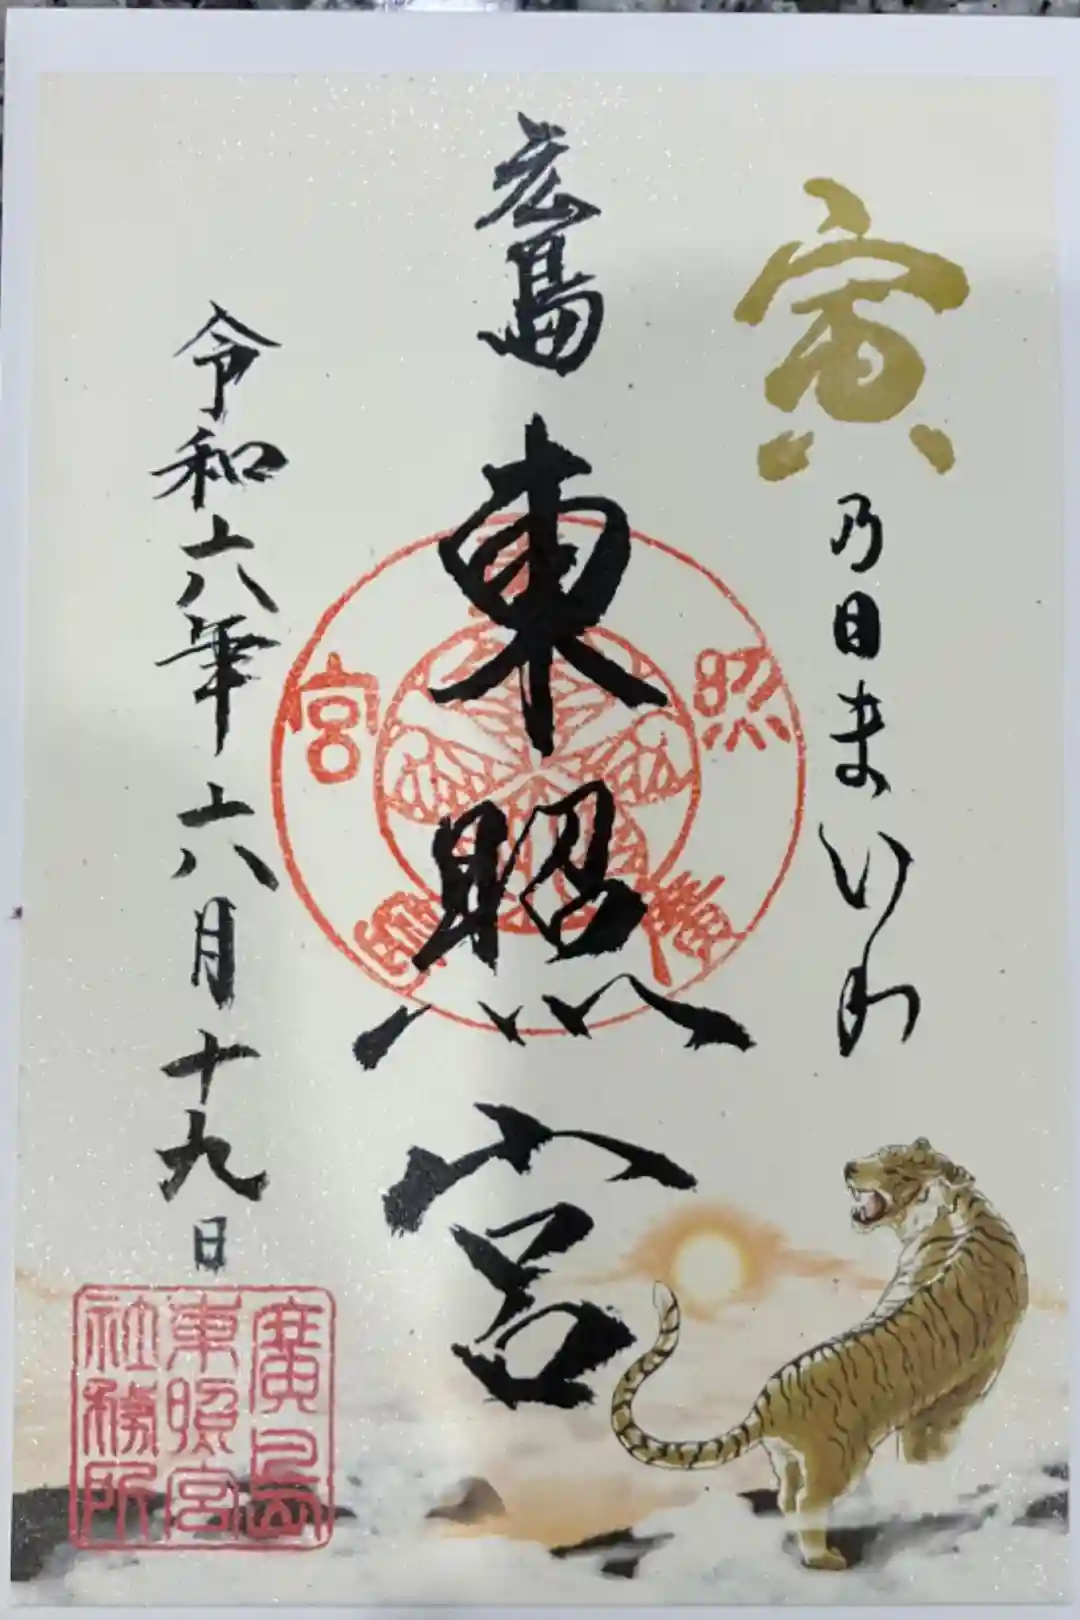 寅乃日まいり
広島
東照宮
令和六年六月十九日
東照宮
廣島
東照宮
社務所